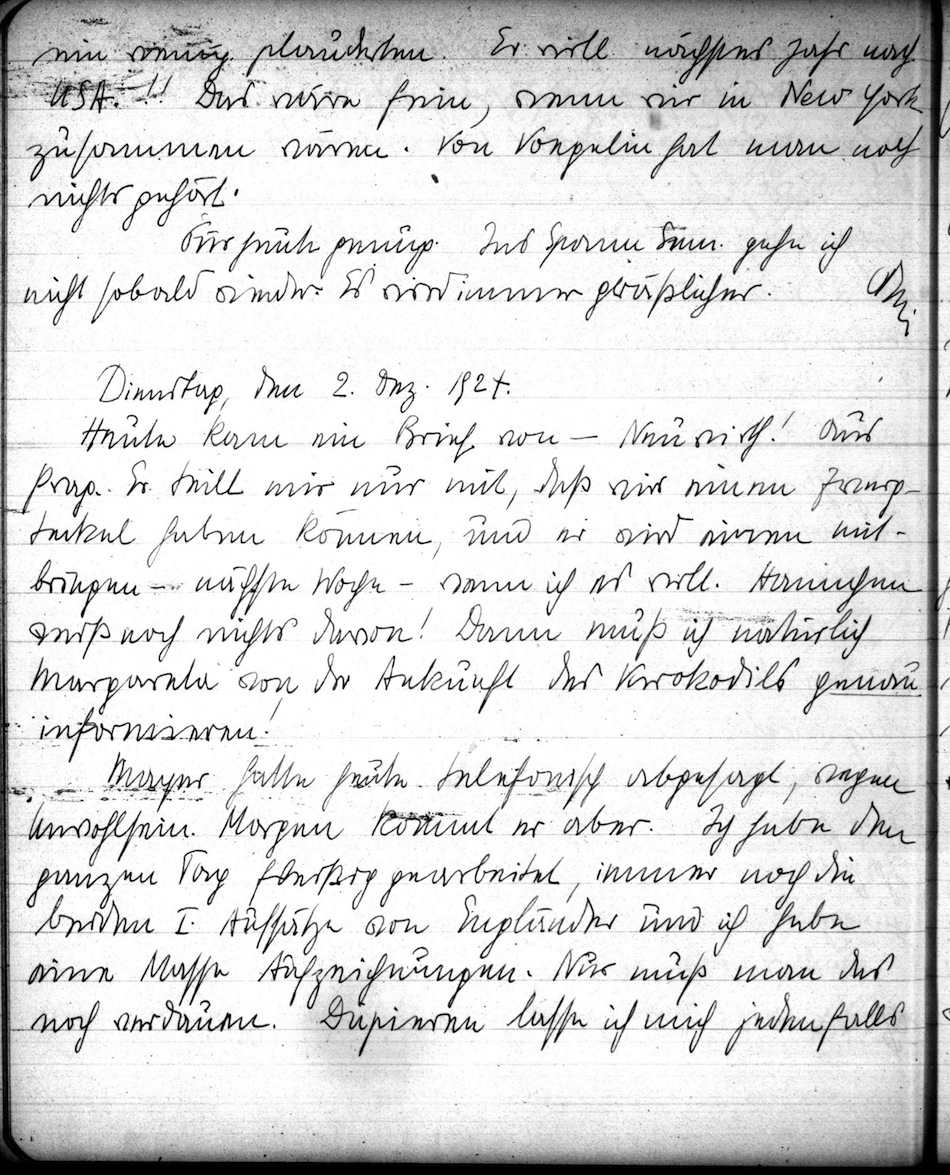 ein wenig plauderten. Er will nächstes Jahr nach
USA. !! Das wäre fein, wenn wir in New York
zusammen wären. Von Voegelin hat man noch
nichts gehört.
Für heute genug. Ins Spann Sem. gehe ich
nicht sobald wieder. Es wird immer grässlicher.
Dienstag, den 2. Dez. 1924.
Heute kam ein Brief von – Neuwirth! Aus
Prag. Er teilt mir nur mit, daß wir einen Zwerg-
teckel haben können, und er wird einen mit-
bringen – nächste Woche – wenn ich es will. Hannchen
weiß noch nichts davon! Dann muß ich natürlich
Margareta von der Ankunft des Krokodils genau
informieren!
Mayer hatte heute telefonisch abgesagt, wegen
Unwohlsein. Morgen kommt er aber. Ich habe den
ganzen Tag fleißig gearbeitet, immer noch die
beiden I. Aufsätze von Engländer und ich habe
eine Masse Aufzeichnungen. Nur muß man das
noch verdauen. Düpieren lasse ich mich jedenfalls